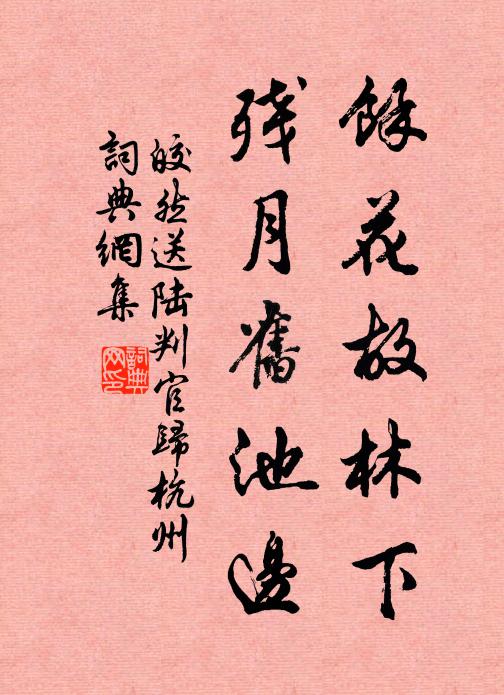 餘花故林下
残月舊池邊
皎然送陆判官歸杭州
詞典網集
詞典網印